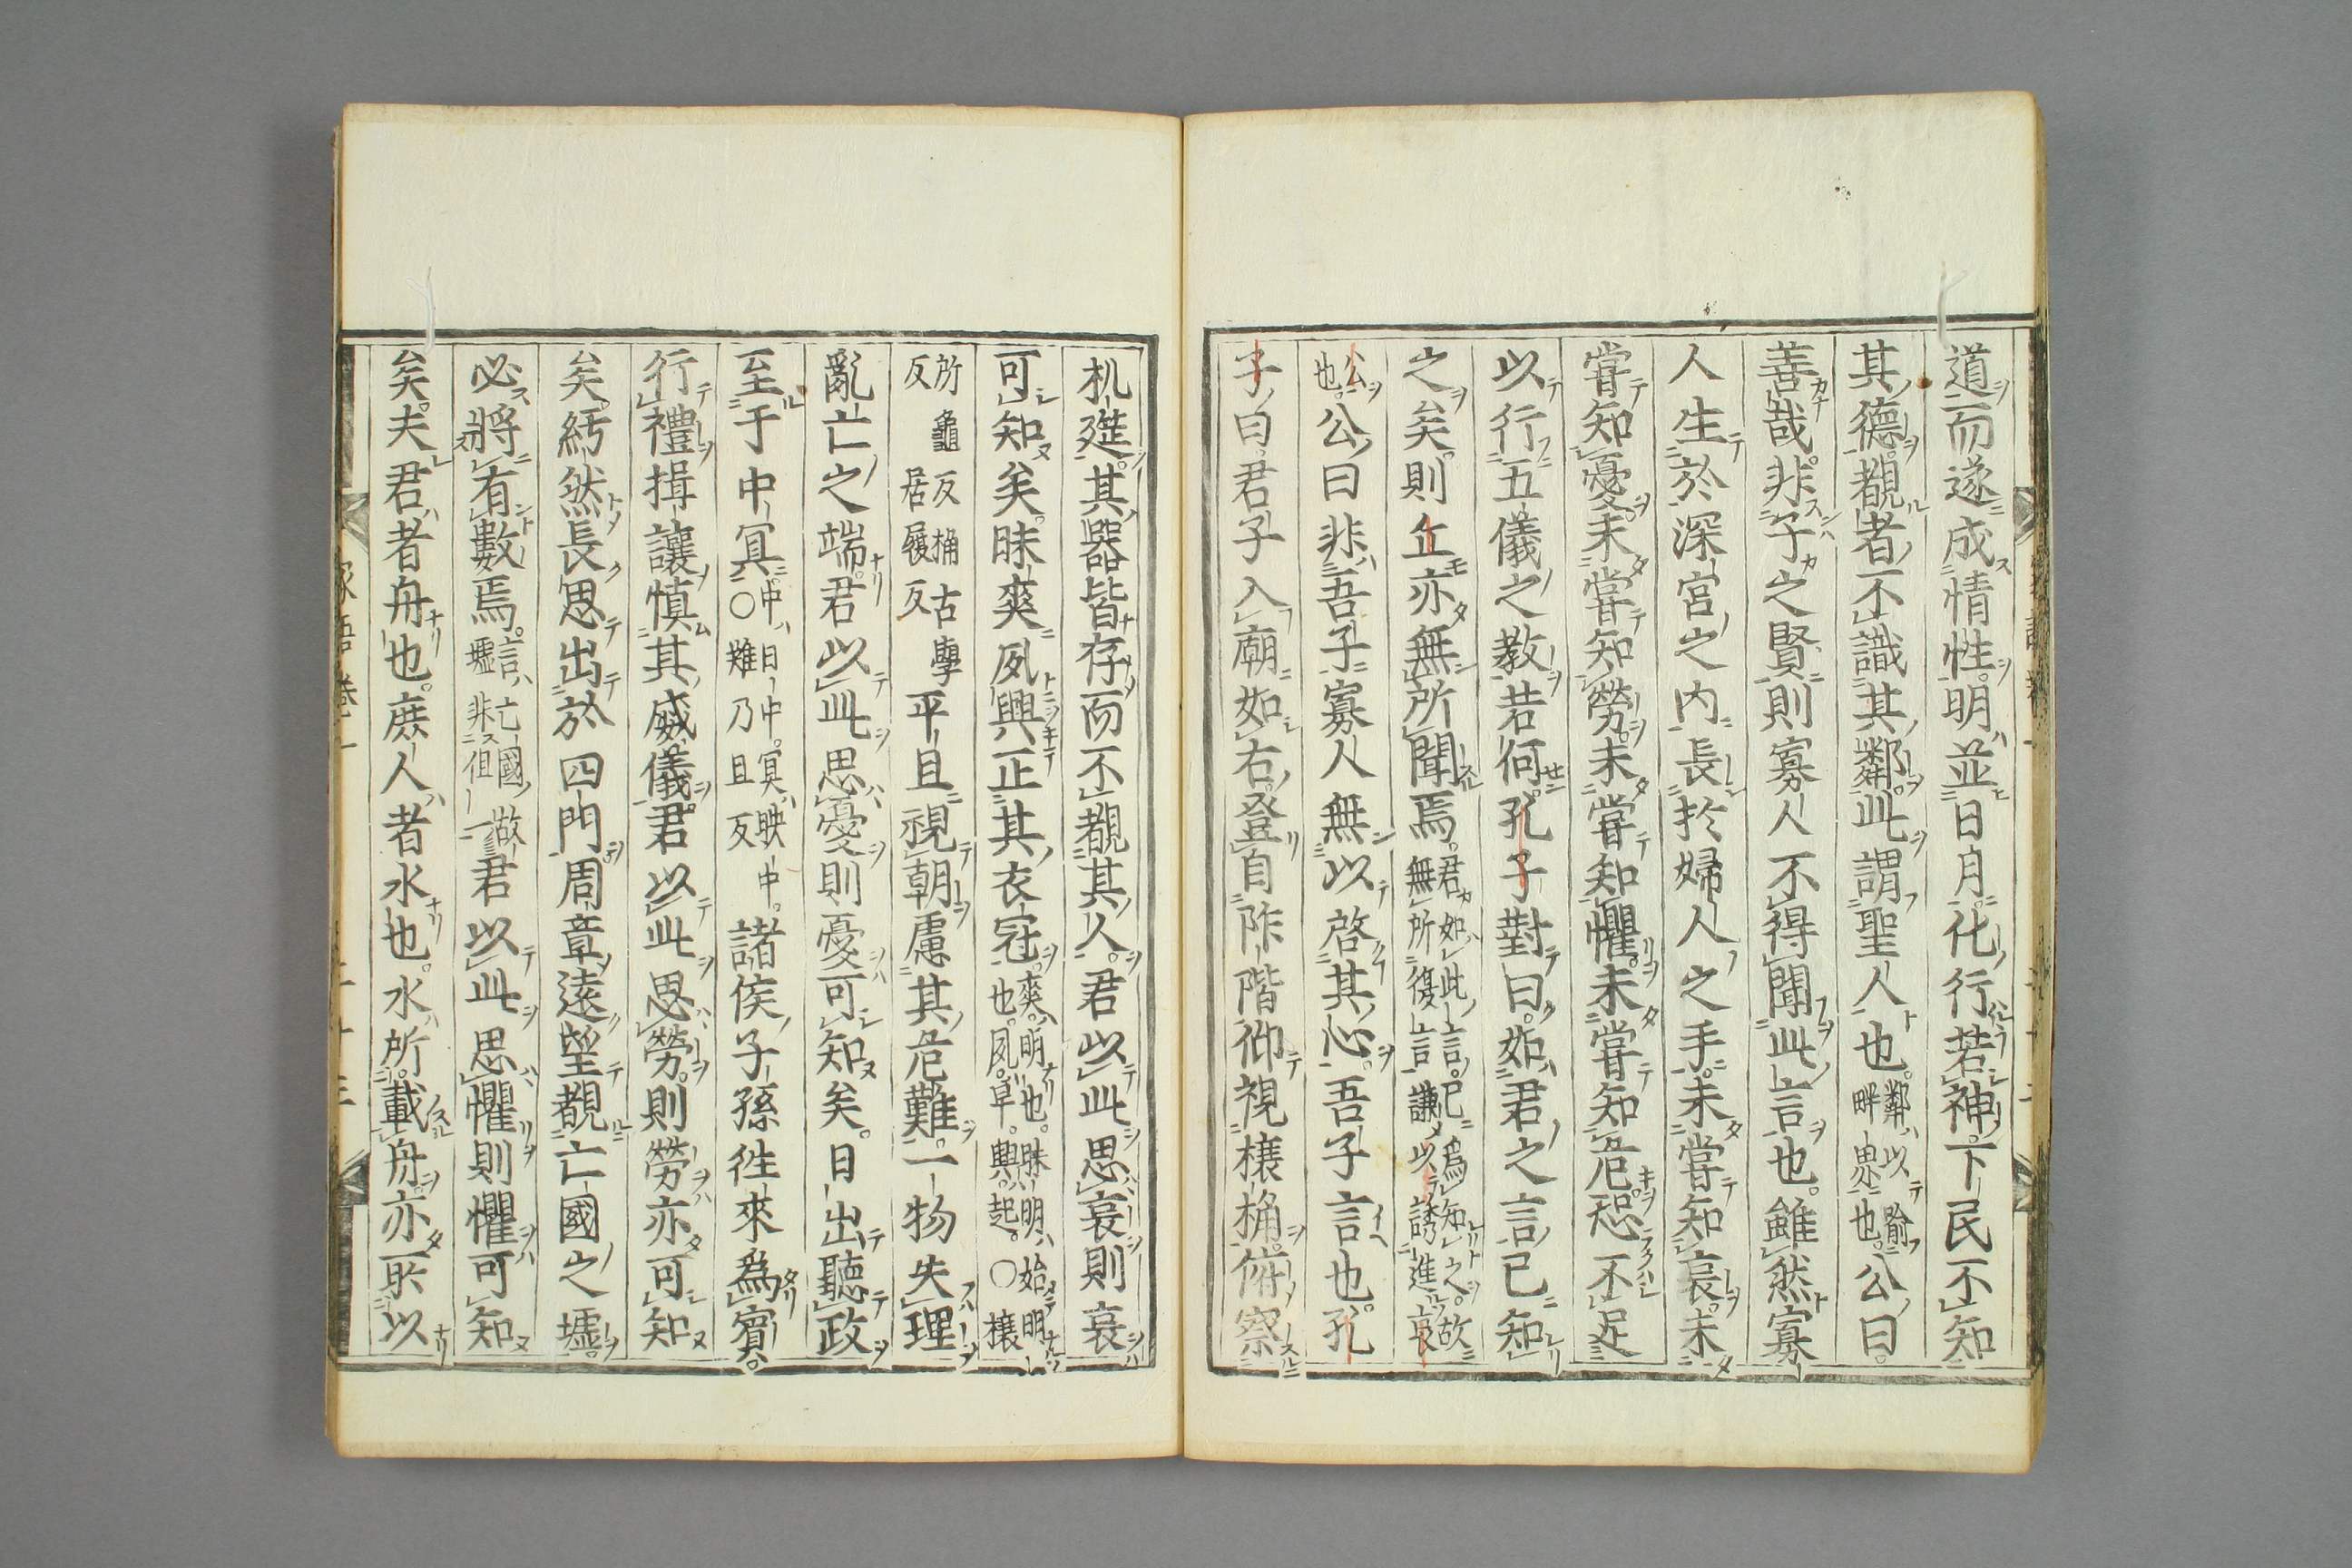 道而遂成情性。明並日月。化行若神。下民不知
其德。覩者不識其鄰。此謂聖人也。鄰以喻畔界也。公曰。
善哉。非子之賢。則寡人不得聞此言也。雖然寡
人生於深宮之內。長於婦人之手。未嘗知哀。未
嘗知憂。未嘗知勞。未嘗知懼。未嘗知危。恐不足
以行五儀之教。若何。孔子對曰。如君之言。已知
之矣。則丘亦無所聞焉。君如此言。已爲知之。故無所復言。謙以誘進哀
公也。公曰非吾子寡人無以啓其心。吾子言也。孔
子曰。君子入廟如右。登自阼階。仰視榱桷。俯察
机筵。其器皆存而不覩其人。君以此思哀則哀
可知矣。昧爽夙興正其衣冠。爽明也。昧明始明也。夙。早。興。起。〇榱
所龜反桷古學反居履反平旦視朝慮其危難。一物失理
亂亡之端。君以此思憂則憂可知矣。日出聽政
至于中冥。中日中。冥映中。〇難乃旦反諸侯子孫往來爲賓。
行禮揖讓愼其威儀。君以此思勞。則勞亦可知
矣。緬然長思出於四門周章遠望覩亡國之墟。
必將有數焉。言亡國故墟非但一君以此思懼則懼可知
矣。夫君者舟也。庶人者水也。水所載舟。亦所以
家語卷一 二十三